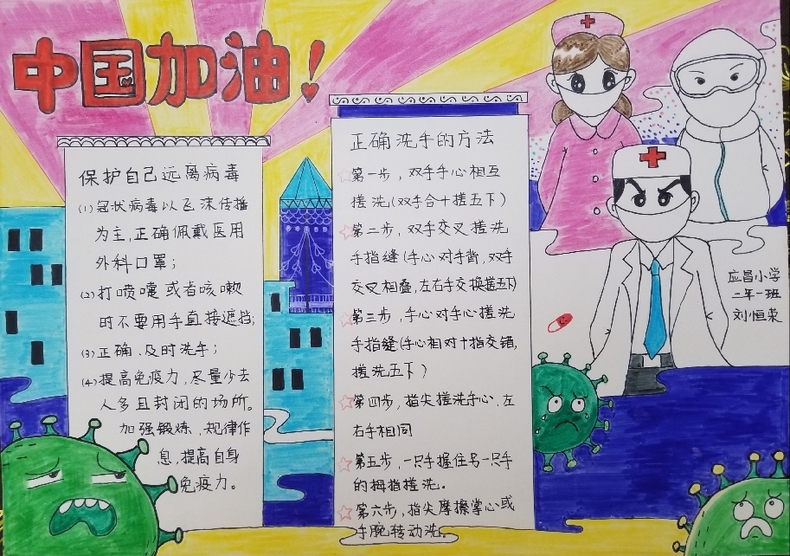 中国加油！
保护自己远离病毒
(1) 冠状病毒以飞沫传播
为主,正确佩戴医用
外科口罩；
(2) 打喷嚏或者咳嗽
时不要用手直接遮挡;
(3) 正确、及时洗手；
(4) 提高免疫力,尽量少去
人多且封闭的场所。
加强锻炼,规律作
息,提高自身
免疫力。
正确洗手的方法
第一步,双手手心相互
搓洗(双手合十搓五下)
第二步,双手交叉搓洗
手指缝(手心对手背,双手
交叉相叠,左右手交换搓五下)
第三步,手心对手心搓洗
手指缝(手心相对十指交错,
搓洗五下)
第四步,指尖搓洗手心,左
右手相同
第五步,一只手握住另一只手
的拇指搓洗。
第六步,指尖摩擦掌心或
手腕转动洗。
应昌小学
二年一班
刘恒荣